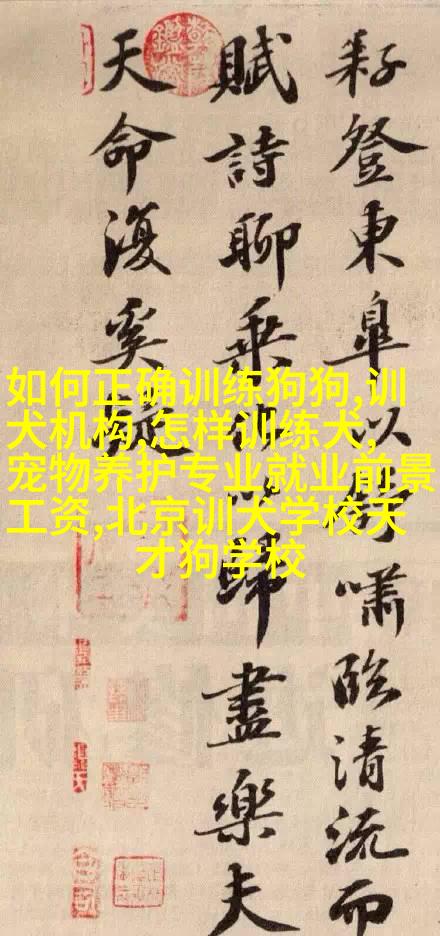 耔登東皐以舒嘯臨清流而
賦詩聊乘化以歸盡樂夫
天命復奚疑
如何正确训练狗狗,训
犬机构,怎样训练犬,
宠物养护专业就业前景
工资,北京训犬学校天
才狗学校